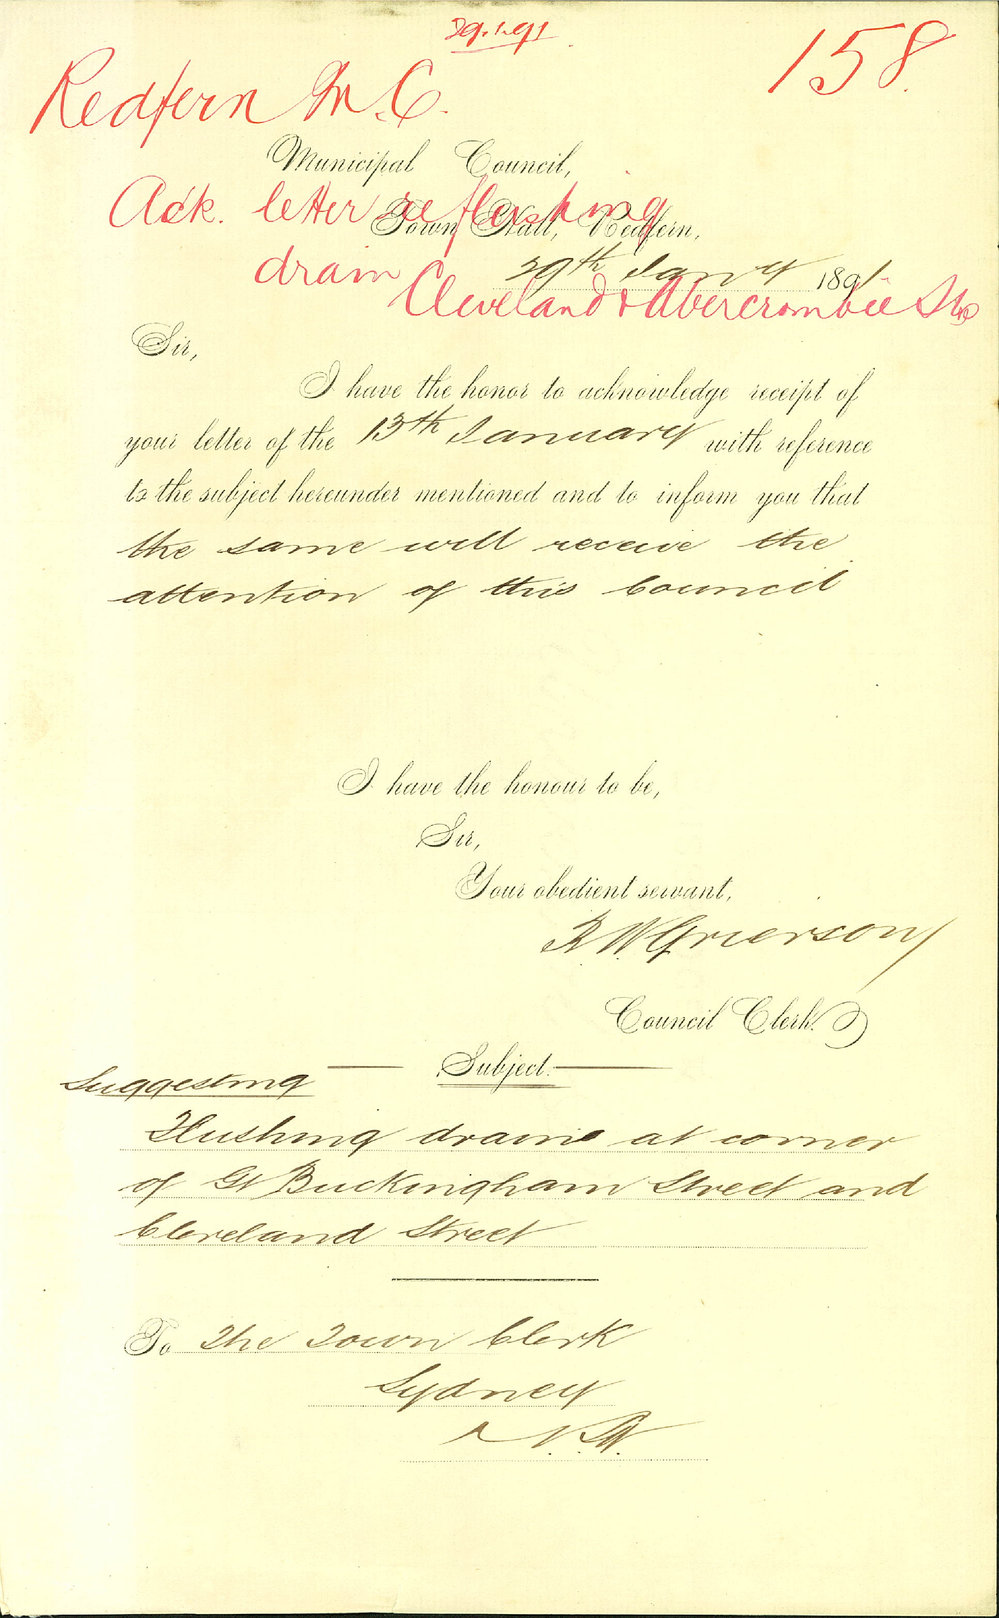 29.1.91
158.
Redfern M.C.
Municipal Council,
Ack. letter re flushing
Town Hall, Redfern,
drain
29th Jany 1891
Cleveland & Abercrombie Sts
Sir,
I have the honor to acknowledge receipt of
your letter of the 13th January with reference
to the subject hereunder mentioned and to inform you that
the same will receive the
attention of this Council
I have the honour to be,
Sir,
Your obedient servant,
Grierson
Council Clerk.
Subject.
Suggesting
Flushing drains at corner
of Gt Buckingham Street and
Cleveland Street
To The Town Clerk
Sydney